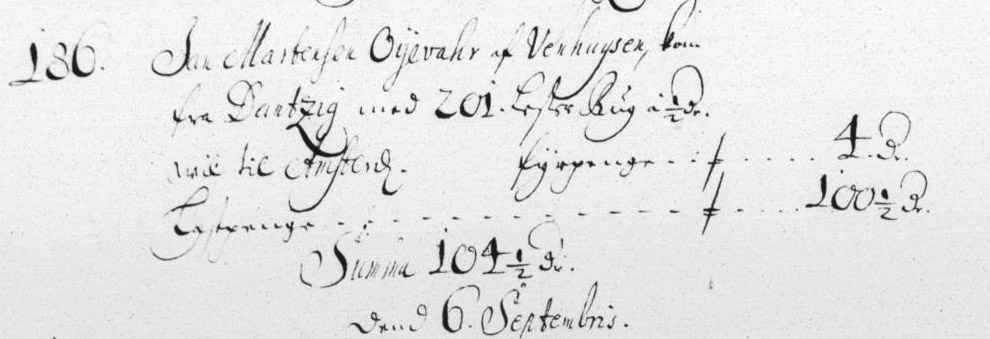 186. Jan Martensen Oÿevahr af Venhuysen, kom
fra Dantzig med 201. Lester Rug à ½ dr.
will til Amsterd. fÿrpenge . . . . . . 4. d.
Lastpenge - - - - - - - - - . . . . . 100 ½ d.
Summa 104 ½ dr.
dend 6. Septembris.